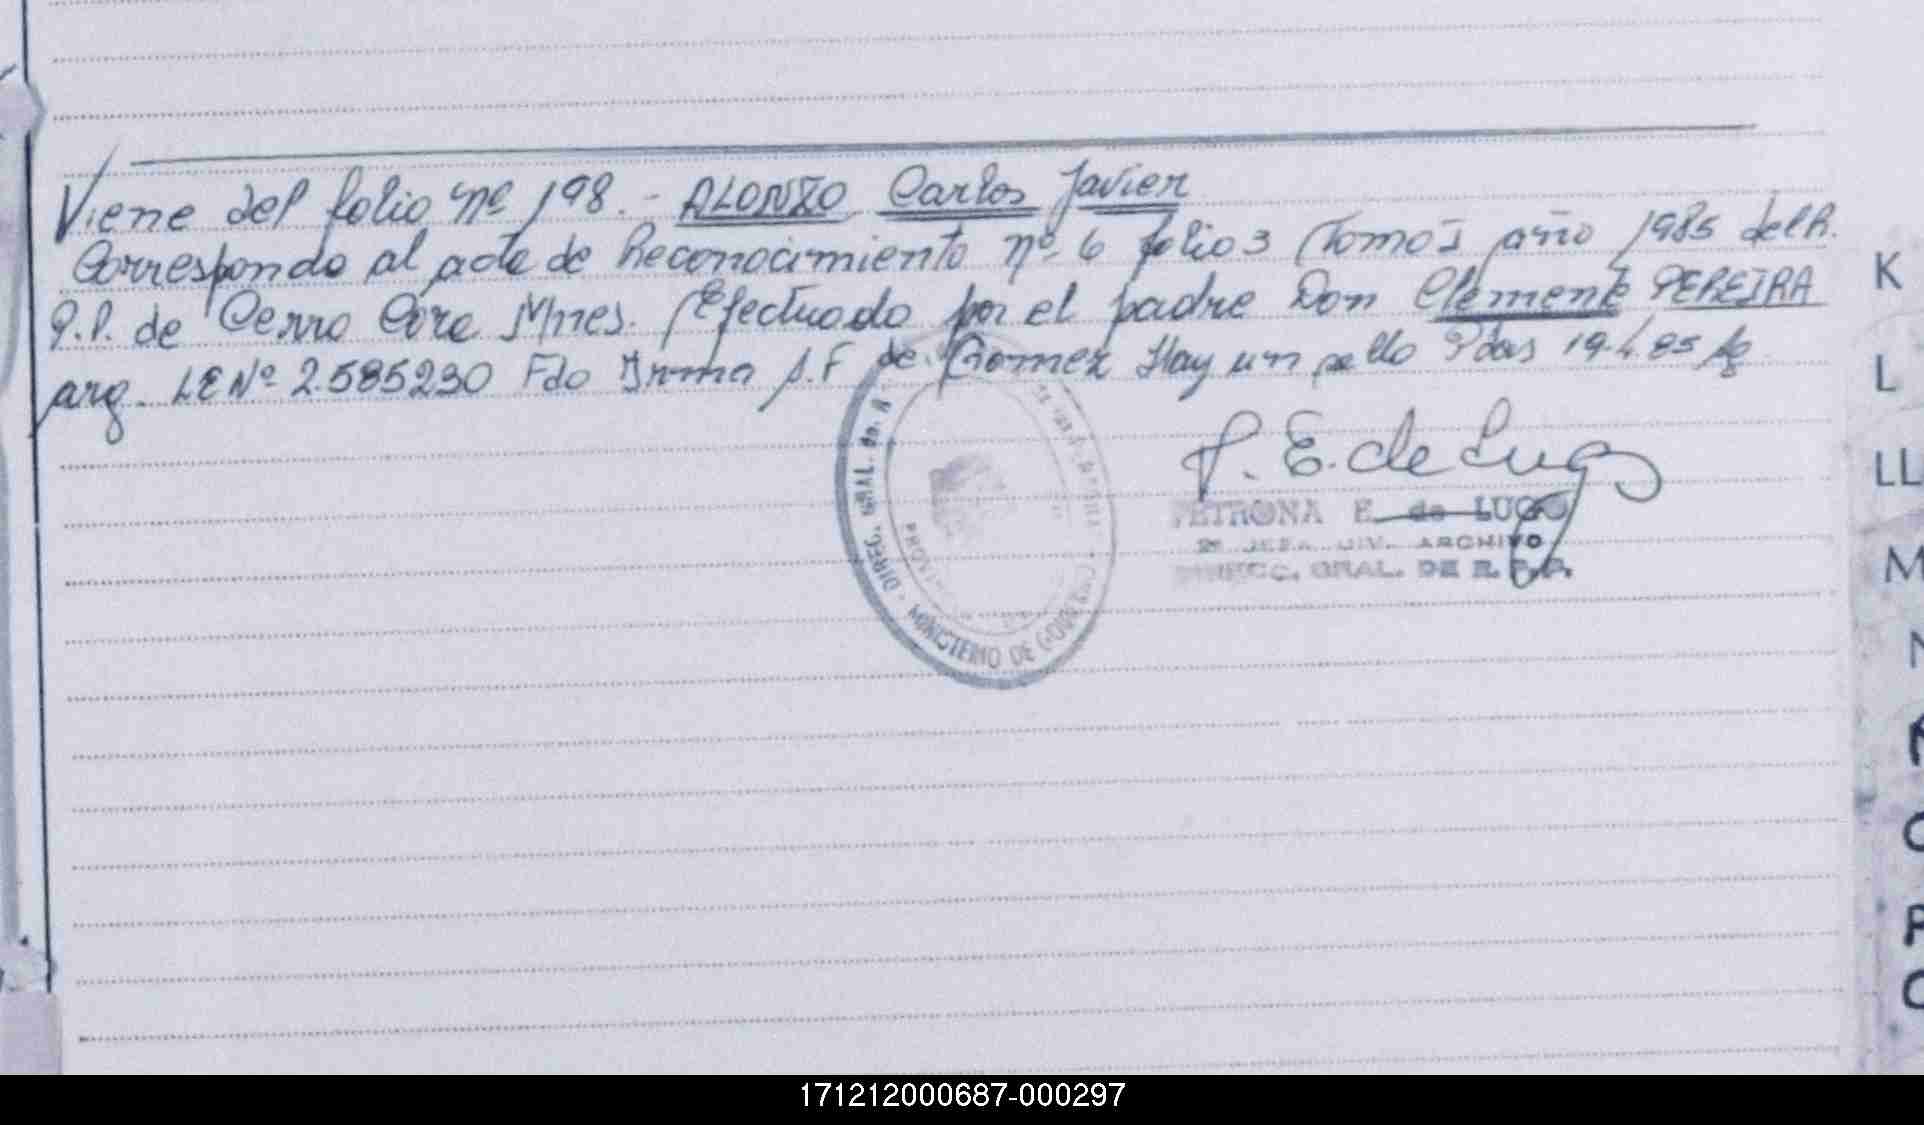 Viene del folio nº 198.- ALONZO Carlos Javier
Corresponde al acta de Reconocimiento nº 6 folio 3 Tomo I año 1985 del R.
P.P. de Cerro Cora Mnes. Efectuado por el padre Don Clemente PEREIRA
arg. LE Nº 2.585230 Fdo Irma A.F de Gomez Hay un sello Pdas 19.4.85
P. E. de Lugo
PETRONA E. de LUGO
DIV. ARCHIVO
DIRECC. GRAL. DE R.P.P.
DIREC. GRAL. de. R
MINISTERIO DE GOBIERNO
K
L
LL
M
N
P
171212000687-000297